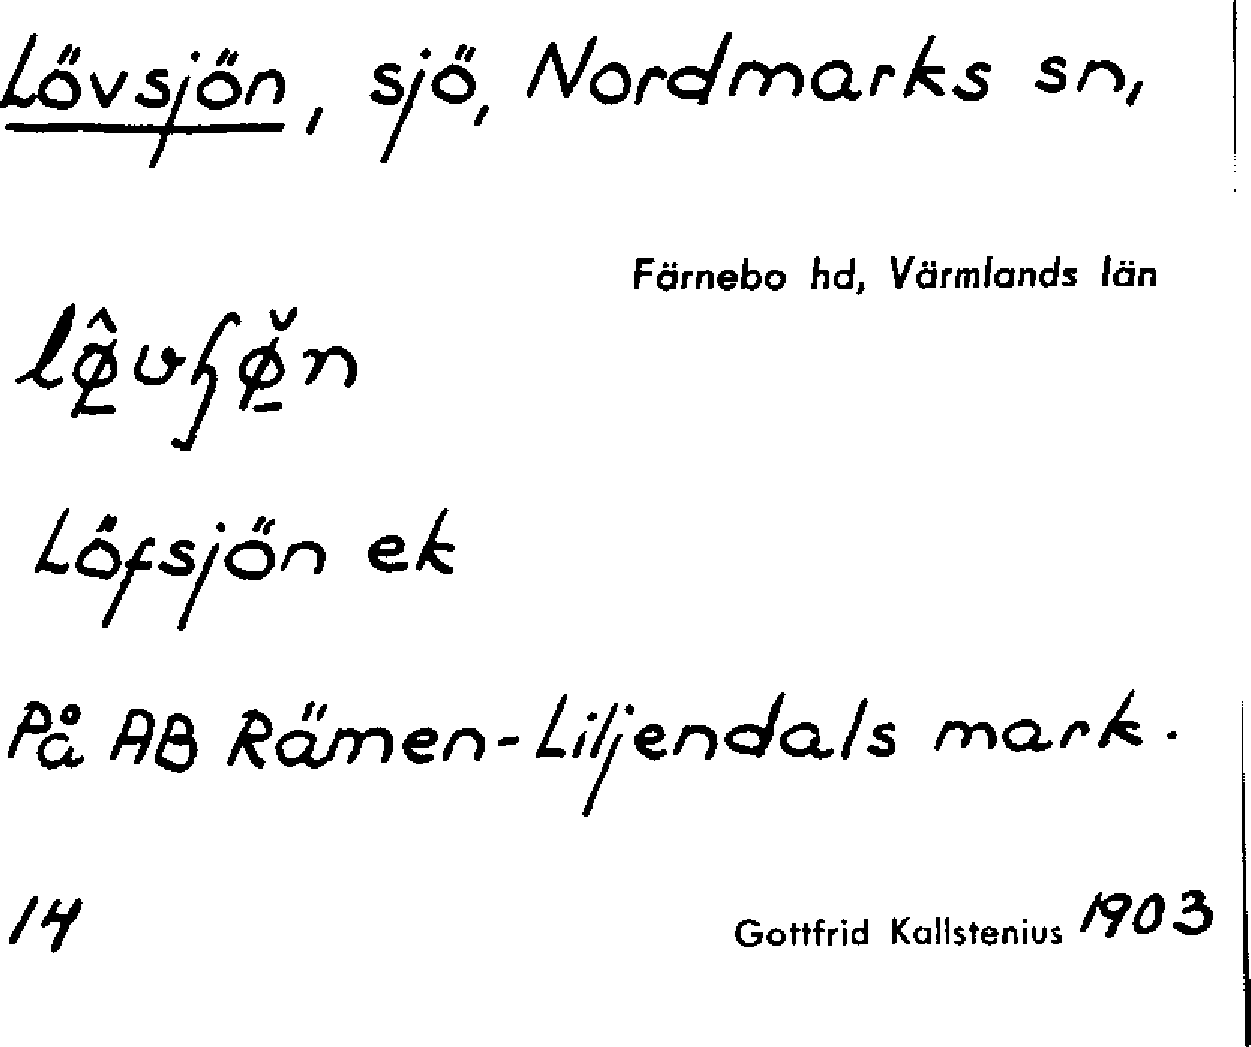 Lövsjön, sjö, Nordmarks sn,
Färnebo hd, Värmlands län
Löfsjön ek
På AB Rämen-Liljendals mark.
14
Gottfrid Kallstenius 1903